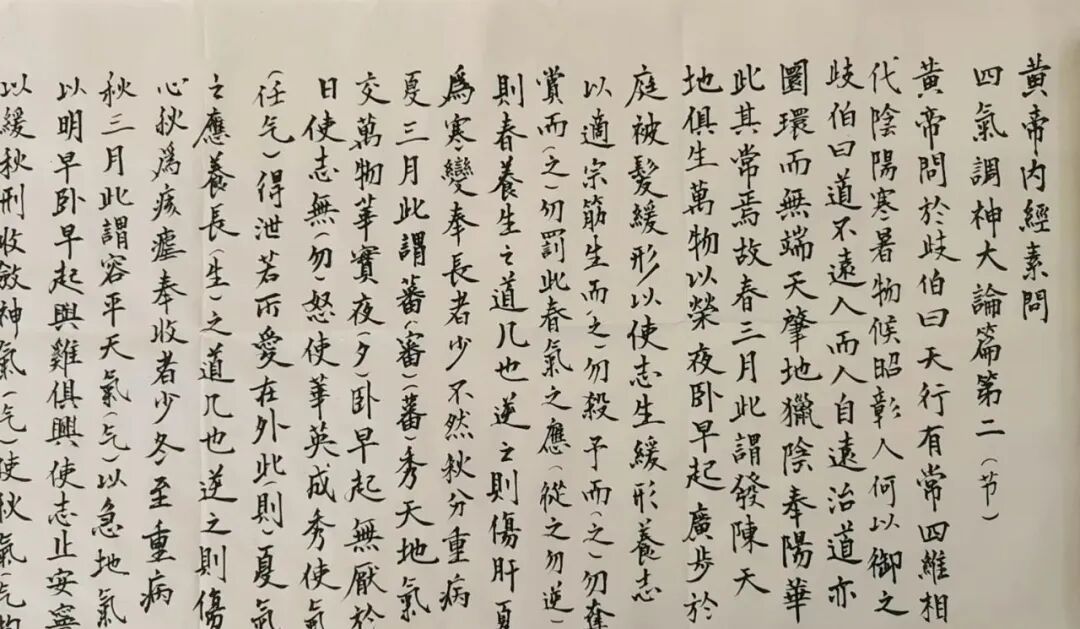 黃帝内經素問
四氣調神大論篇第二(节)
黃帝問於歧伯曰天行有常四維相
代陰陽寒暑物候昭彰人何以御之
歧伯曰道不遠人而人自遠治道亦
圜環而無端天肇地獵陰奉陽華
此其常焉故春三月此謂發陳天
地俱生萬物以榮夜卧早起廣步於
庭被髮緩形以使志生緩形養志
以適宗筋生而(之)勿殺予而(之)勿奪
賞而(之)勿罰此春氣之應(從之勿逆)
則春養生之道几也逆之則傷肝夏
爲寒變奉長者少不然秋分重病
夏三月此謂蕃(審)(蕃)秀天地氣
交萬物華實夜(夕)卧早起無厭於
日使志無(勿)怒使華英成秀使氣
(任气)得泄若所愛在外此(則)夏氣
之應養長(生)之道几也逆之則傷
心秋爲痎瘧奉收者少冬至重病
秋三月此謂容平天氣(气)以急地氣
以明早卧早起與雞俱興使志止安寧
以緩秋刑收斂神氣(气)使秋氣(气